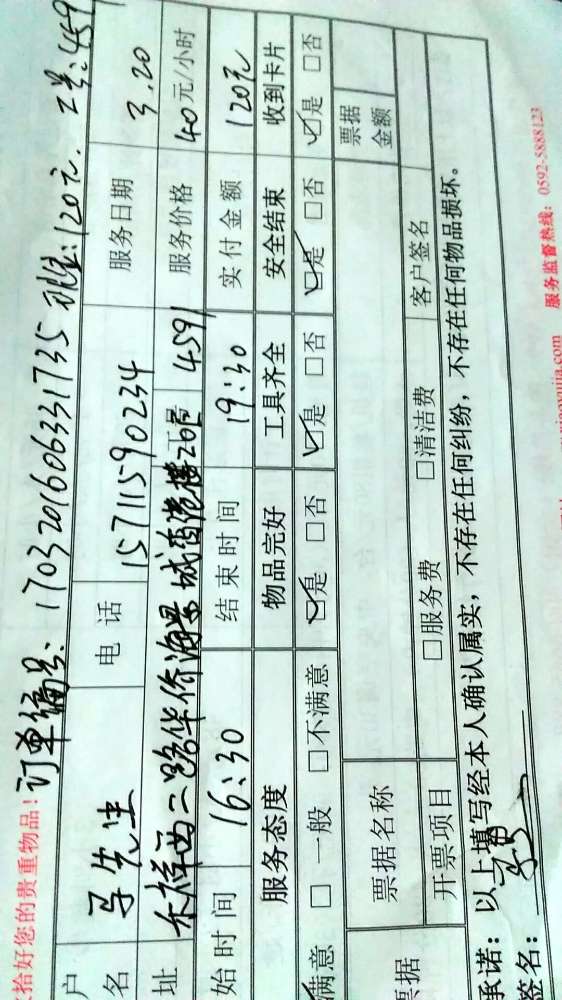 拾好您的贵重物品！
订单编号：1703201606331735 现金：120元．工号：459
户名
先生
电话
15711590234
服务日期
3.20
址
禾祥西二路华侨海景城香港楼26E
工号
4591
服务价格
40元/小时
始时间
16:30
结束时间
19:30
实付金额
120元
服务态度
物品完好
工具齐全
安全结束
收到卡片
满意 □一般 □不满意
☑是 □否
☑是 □否
☑是 □否
☑是 □否
票据
票据名称
票据金额
开票项目
□服务费 □清洁费
客户签名
承诺：以上填写经本人确认属实，不存在任何纠纷，不存在任何物品损坏。
签名：
服务监督热线：0592-5888123